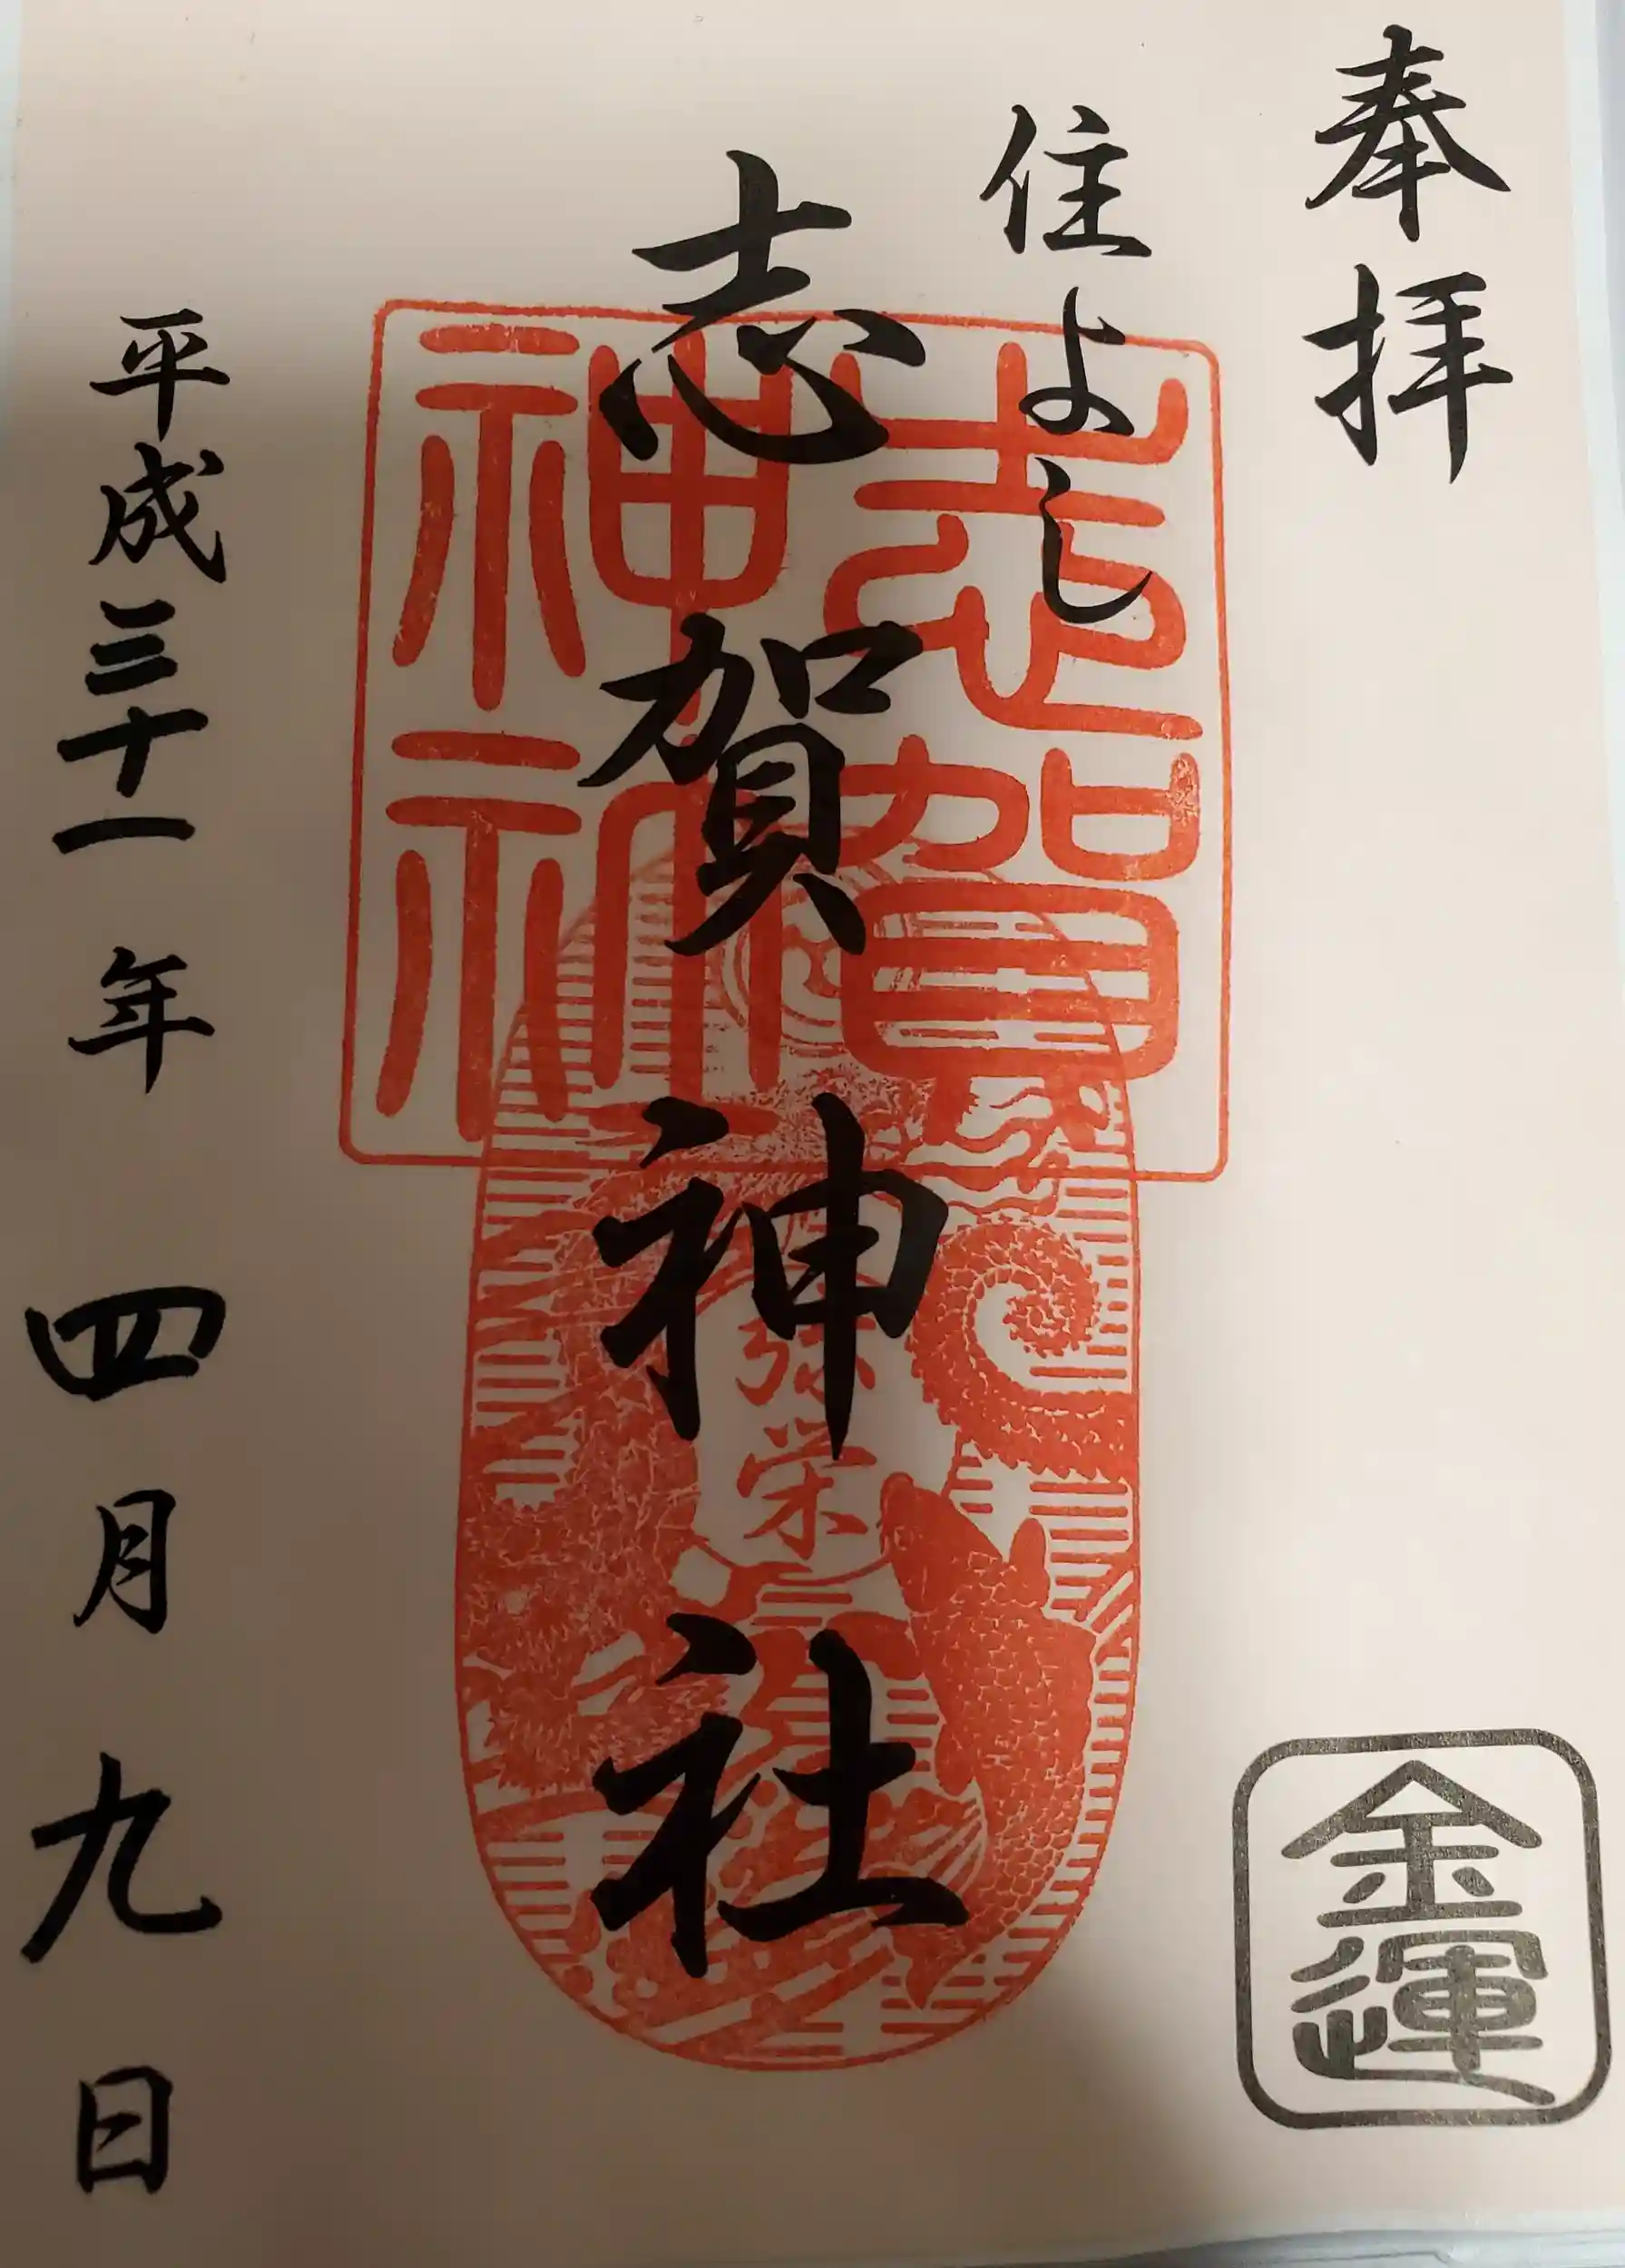 奉拝
金運
住よし
志賀神社
志賀
神社
弥栄
平成三十一年 四月九日